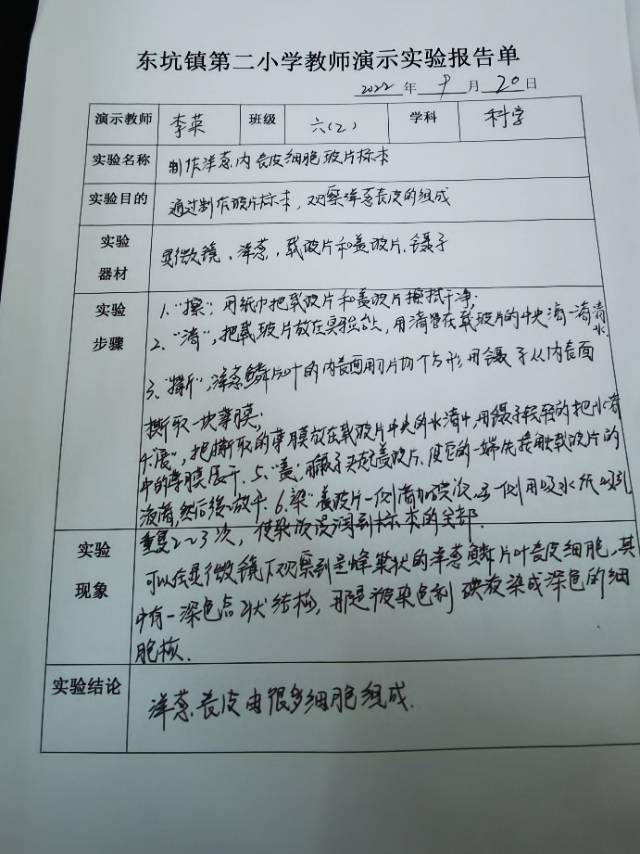 东坑镇第二小学教师演示实验报告单
2022年9月20日
演示教师 李英 班级 六(2) 学科 科学
实验名称 制作洋葱内表皮细胞玻片标本
实验目的 通过制作玻片标本，观察洋葱表皮的组成
实验器材 显微镜、洋葱、载玻片和盖玻片、镊子
实验步骤
1、"擦"，用纸巾把载玻片和盖玻片擦拭干净；
2、"滴"，把载玻片放在实验台上，用滴管在载玻片的中央滴一滴清水
3、"撕"，洋葱鳞片叶的内表面用刀片切个方形，用镊子从内表面
撕取一块薄膜；
4、"展"，把撕取的薄膜放在载玻片中央的水滴中，用镊子轻轻的把水滴
中的薄膜展平、5、"盖"，用镊子夹起盖玻片，使它的一端先接触载玻片的
液滴，然后缓放平、6、染"盖玻片一侧滴加碘液，另一侧用吸水纸吸引
重复2~3次，使染液浸润到标本的全部．
实验现象
可以在显微镜下观察到是蜂巢状的洋葱鳞片叶表皮细胞，其
中有一深色点状结构，那是被染色剂碘液染成深色的细
胞核．
实验结论 洋葱表皮由很多细胞组成．